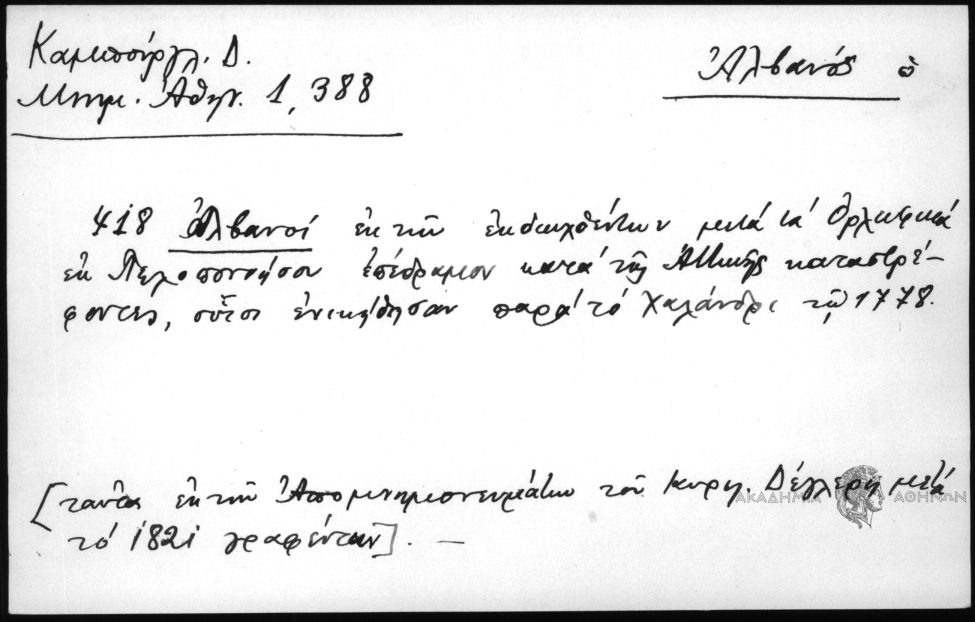 Καμπούργλ. Δ.
Μνημ. Ἀθην. 1, 388
Ἀλβανός ὁ
418 Ἀλβανοί ἐκ τῶν ἐκδιωχθέντων μετά τά Ὀρλωφικά
ἐκ Πελοποννήσου ἐπέδραμον κατά τῆς Ἀττικῆς καταστρέ-
φοντες, οὗτοι ἐνικήθησαν παρά τό Χαλάνδρι τῷ 1778.
[ταῦτα ἐκ τῶν Ἀπομνημονευμάτων τοῦ μετά
τό 1821 γραφέντων]. —
ΑΚΑΔΗΜΙΑ ΑΘΗΝΩΝ